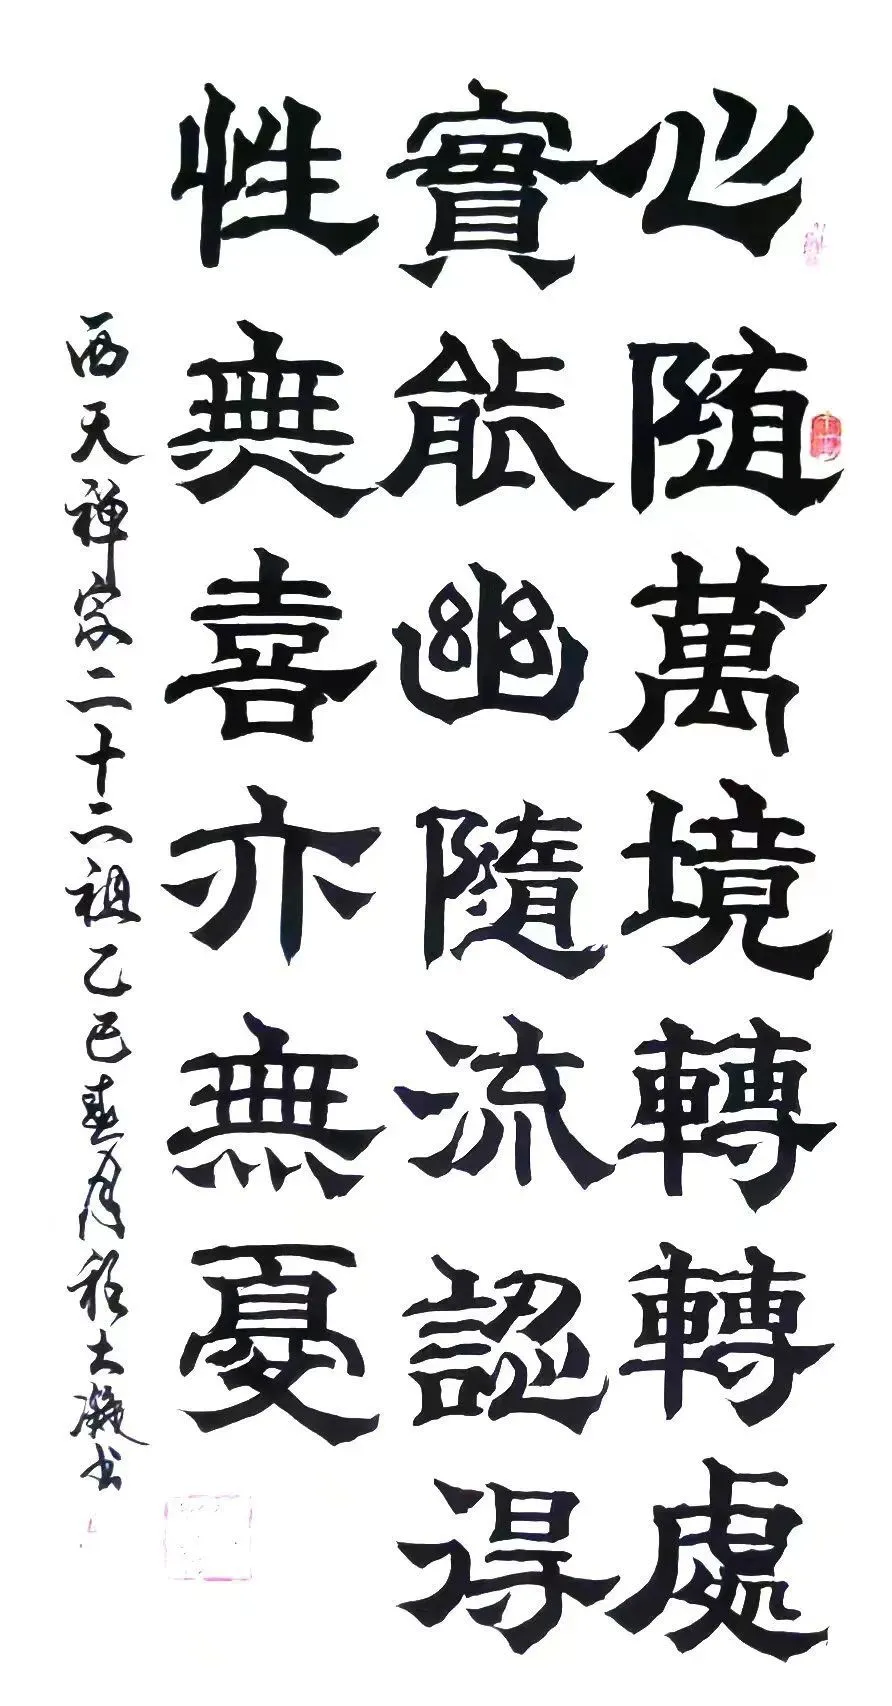 心随萬境轉轉處
實能幽隨流認得
性無喜亦無憂
西天禅家二十二祖乙巳春月大凝书